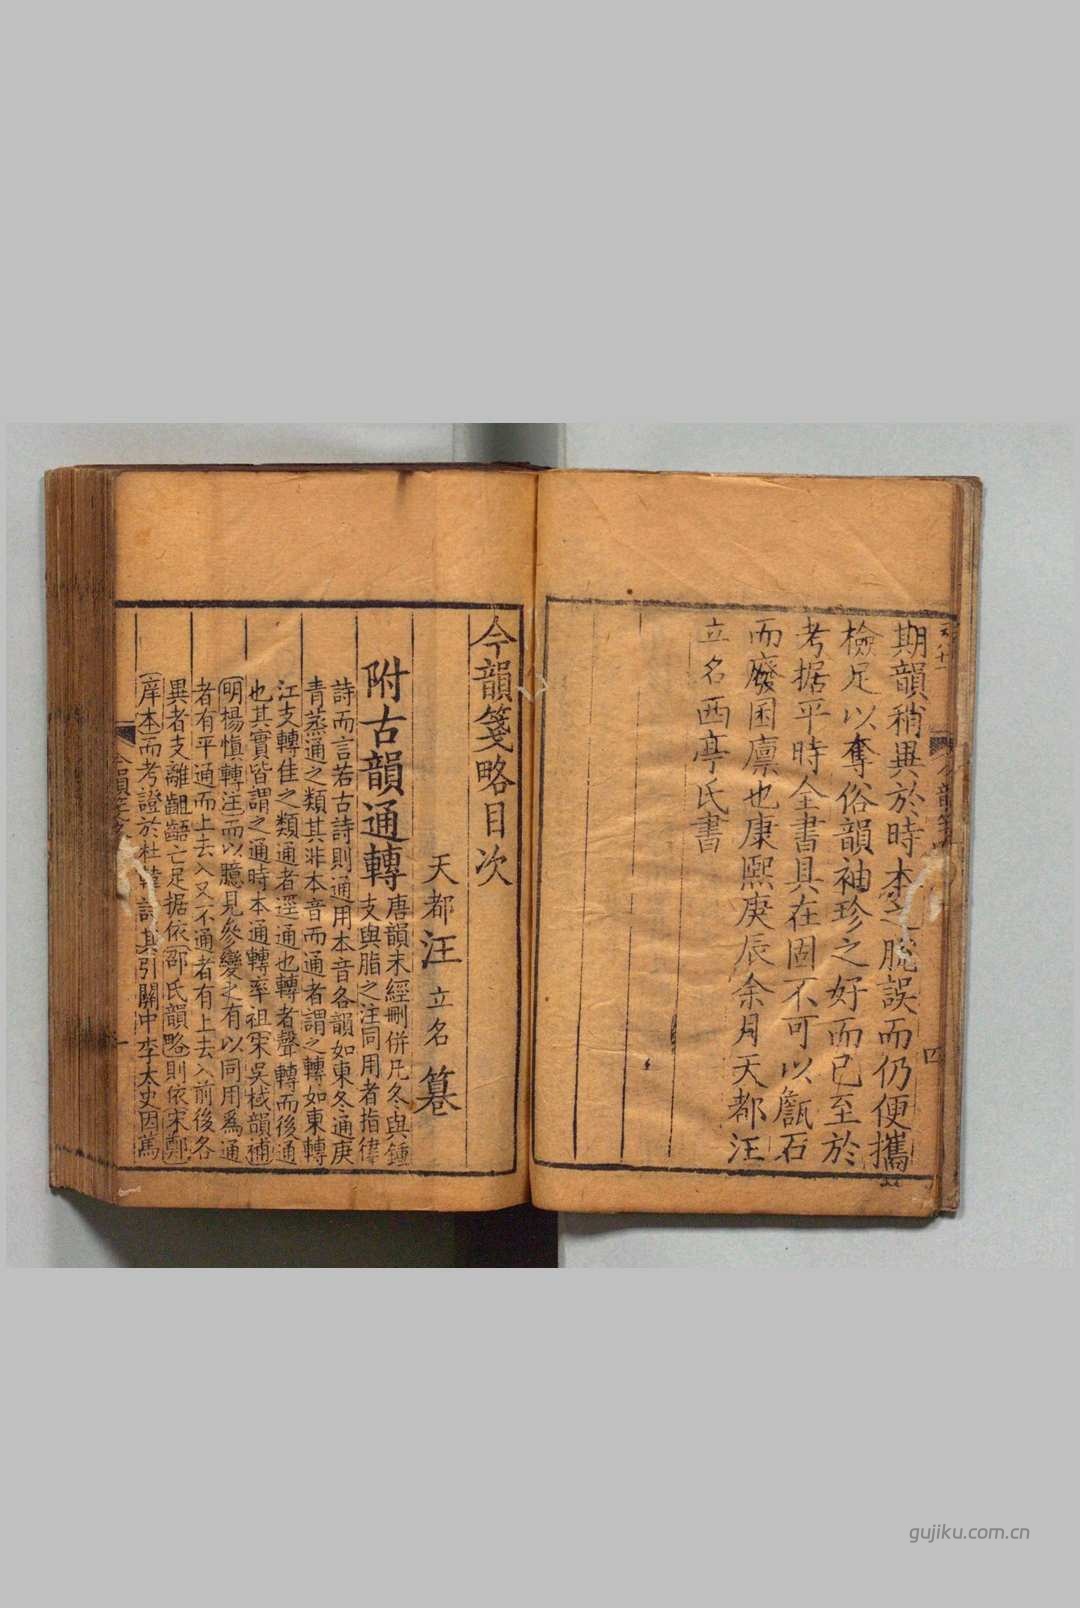 期韻稍異於時本之脫誤而仍便攜
檢足以奪俗韻袖珍之好而已至於
考据平時全書具在固不可以甔石
而廢囷廪也康熙庚辰余月天都汪
立名西亭氏書
四
今韻箋略目次
天都汪立名篹
附古韻通轉
唐韻未經刪併凡冬與鍾
支與脂之注同用者指律
詩而言若古詩則通用本音各韻如東冬通庚
青蒸通之類其非本音而通者謂之轉如東轉
江支轉佳之類通者逕通也轉者聲轉而後通
也其實皆謂之通時本通轉率祖宋吳棫韻補
明楊慎轉注而以臆見參變之有以同用爲通
者有平通而上去入又不通者有上去入前後各
異者支離齟齬亡足据依邵氏韻略則依宋鄭
庠本而考證於杜韓詩其引關中李太史因篤
gujiku.com.cn